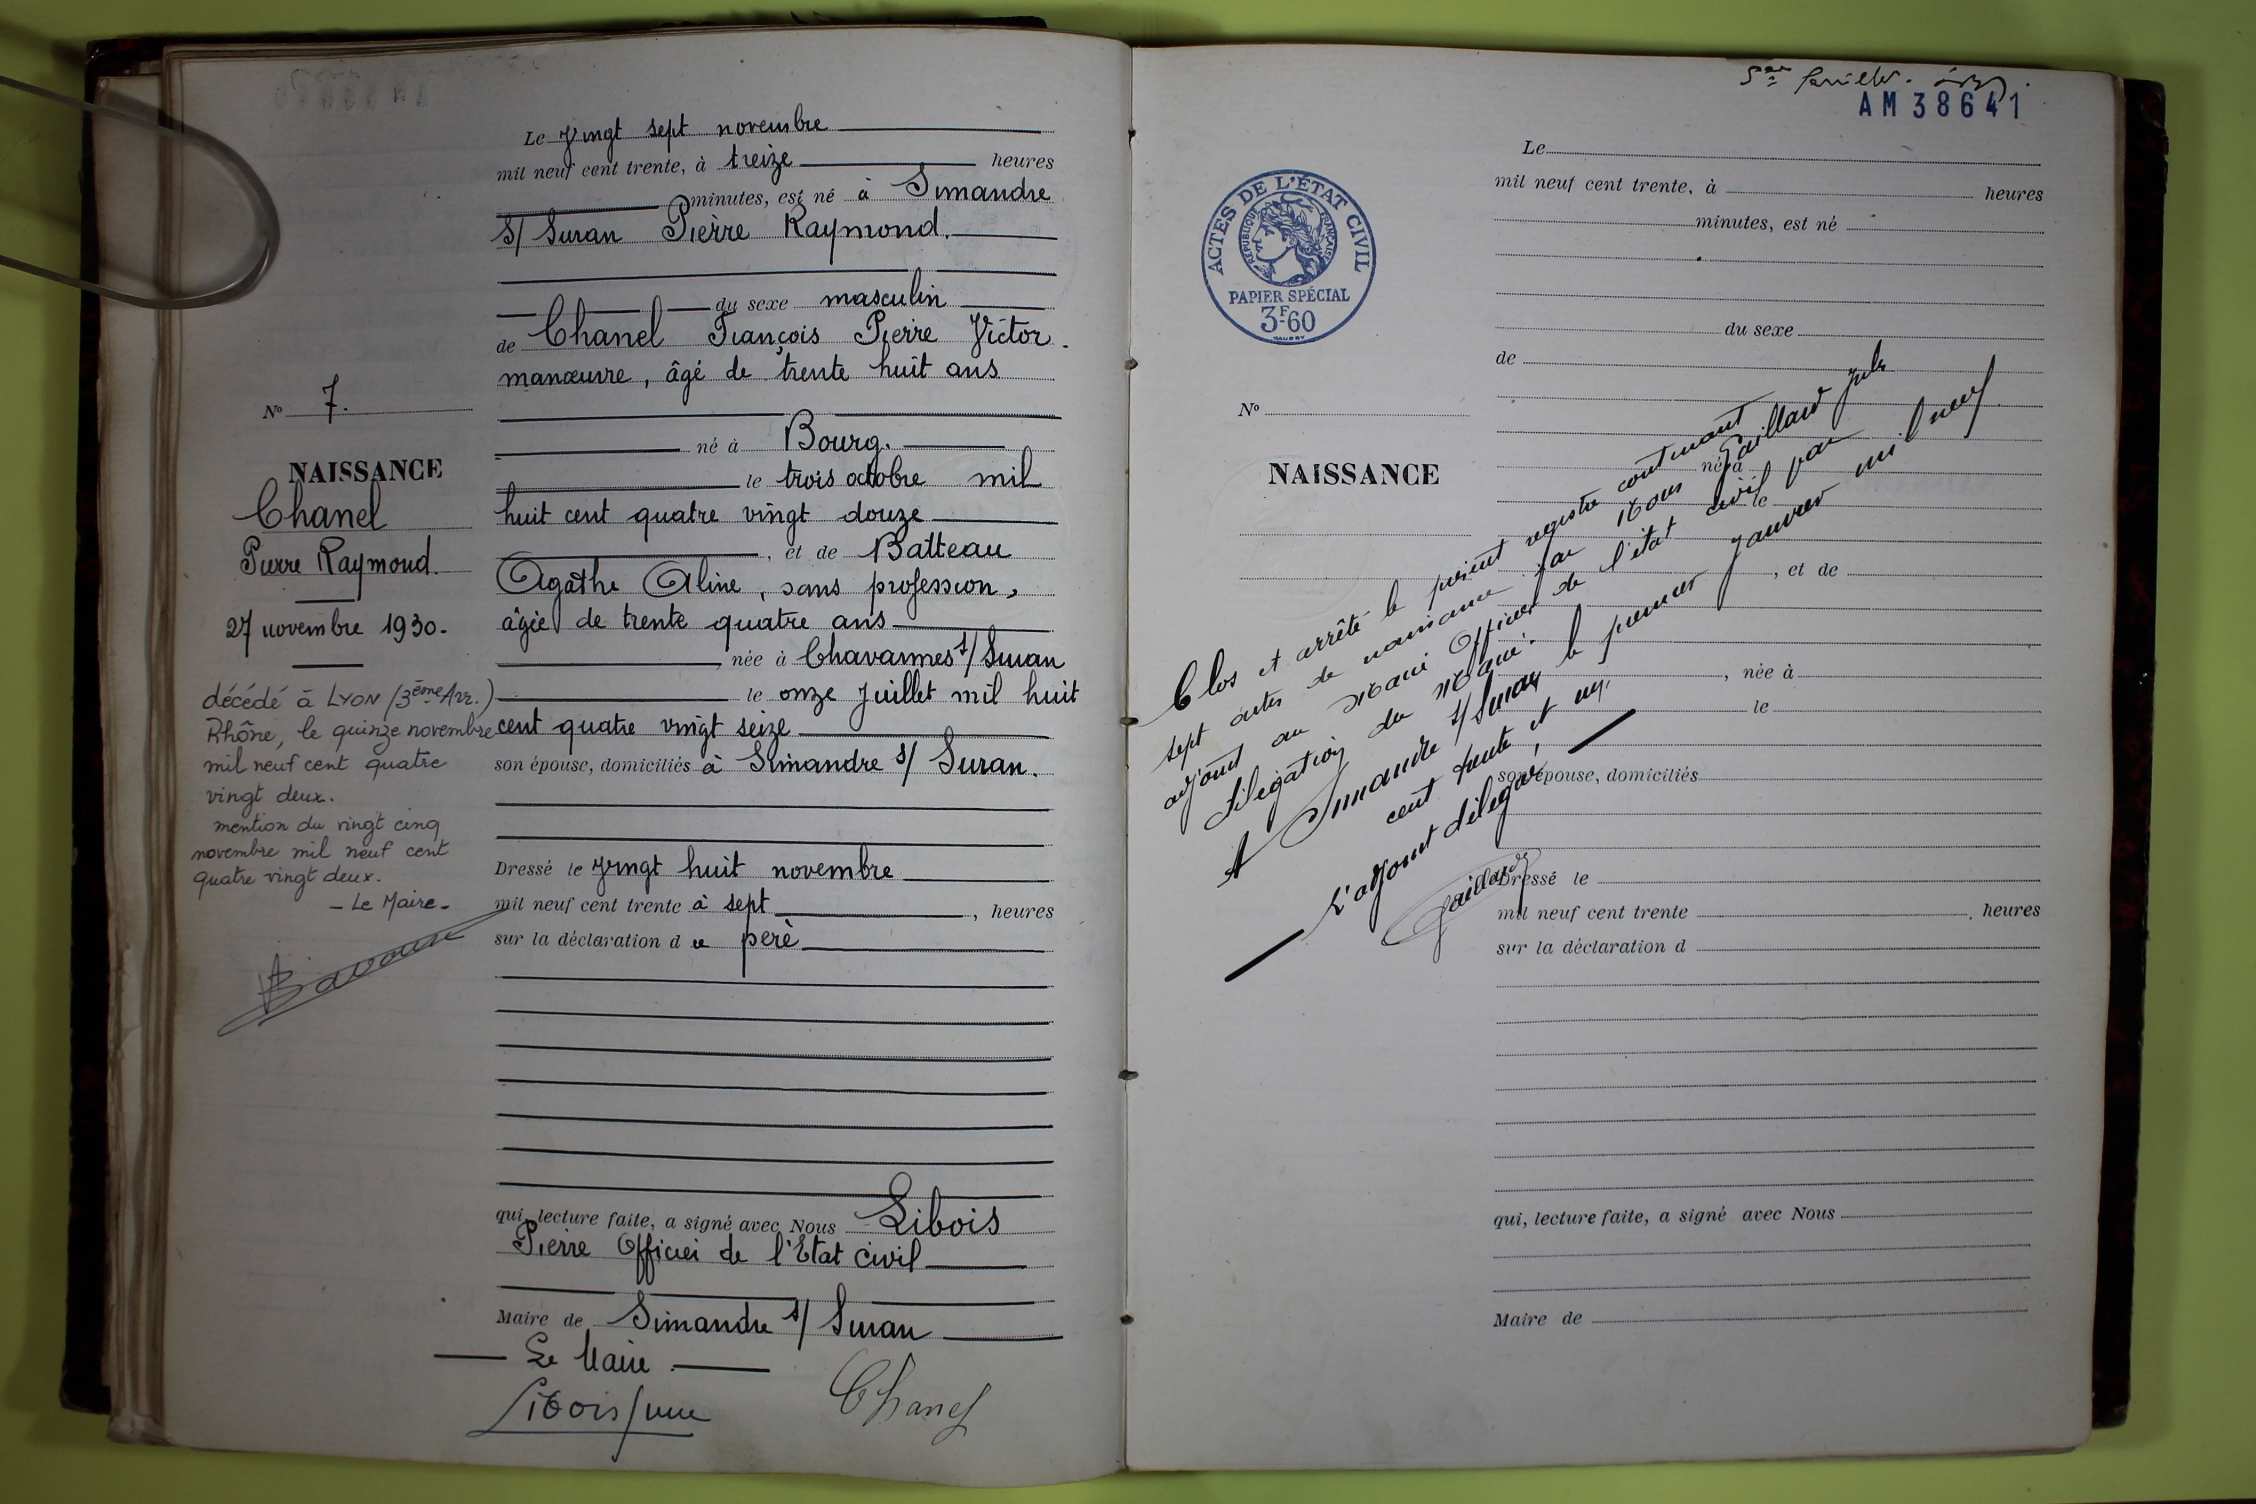 Le Vingt sept novembre
mil neuf cent trente, à treize heures
minutes, est né à Simandre
s/ Suran Pierre Raymond.
du sexe masculin
de Chanel François Pierre Victor
manœuvre, âgé de trente huit ans
né à Bourg.
le trois octobre mil
huit cent quatre vingt douze
, et de Batteau
Agathe Aline, sans profession,
âgée de trente quatre ans
, née à Chavannes s/ Suran
le onze Juillet mil huit
cent quatre vingt seize
son épouse, domiciliés à Simandre s/ Suran.
Dressé le Vingt huit novembre
mil neuf cent trente à sept , heures
sur la déclaration du père
qui, lecture faite, a signé avec Nous Libois
Pierre Officier de l'Etat civil
Maire de Simandre s/ Suran
Le Maire
Libois Pierre
Chanel
N° 7.
NAISSANCE
Chanel
Pierre Raymond.
27 novembre 1930.
décédé à LYON (3ème Arr.)
Rhône, le quinze novembre
mil neuf cent quatre
vingt deux.
mention du vingt cinq
novembre mil neuf cent
quatre vingt deux.
- Le Maire -
AM38641
ACTES DE L'ÉTAT CIVIL
RÉPUBLIQUE FRANÇAISE
PAPIER SPÉCIAL
3F60
Le
mil neuf cent trente, à heures
minutes, est né
du sexe
de
N°
né à
NAISSANCE
le
, et de
, née à
le
son épouse, domiciliés
Dressé le
mil neuf cent trente , heures
sur la déclaration d
qui, lecture faite, a signé avec Nous
Maire de
Clos et arrêté le présent registre contenant
sept actes de naissance par Nous Gaillard Jules
adjoint au Maire Officier de l'état civil par
délégation du Maire.
A Simandre s/ Suran le premier Janvier mil neuf
cent trente et un.
L'adjoint délégué,
Gaillard